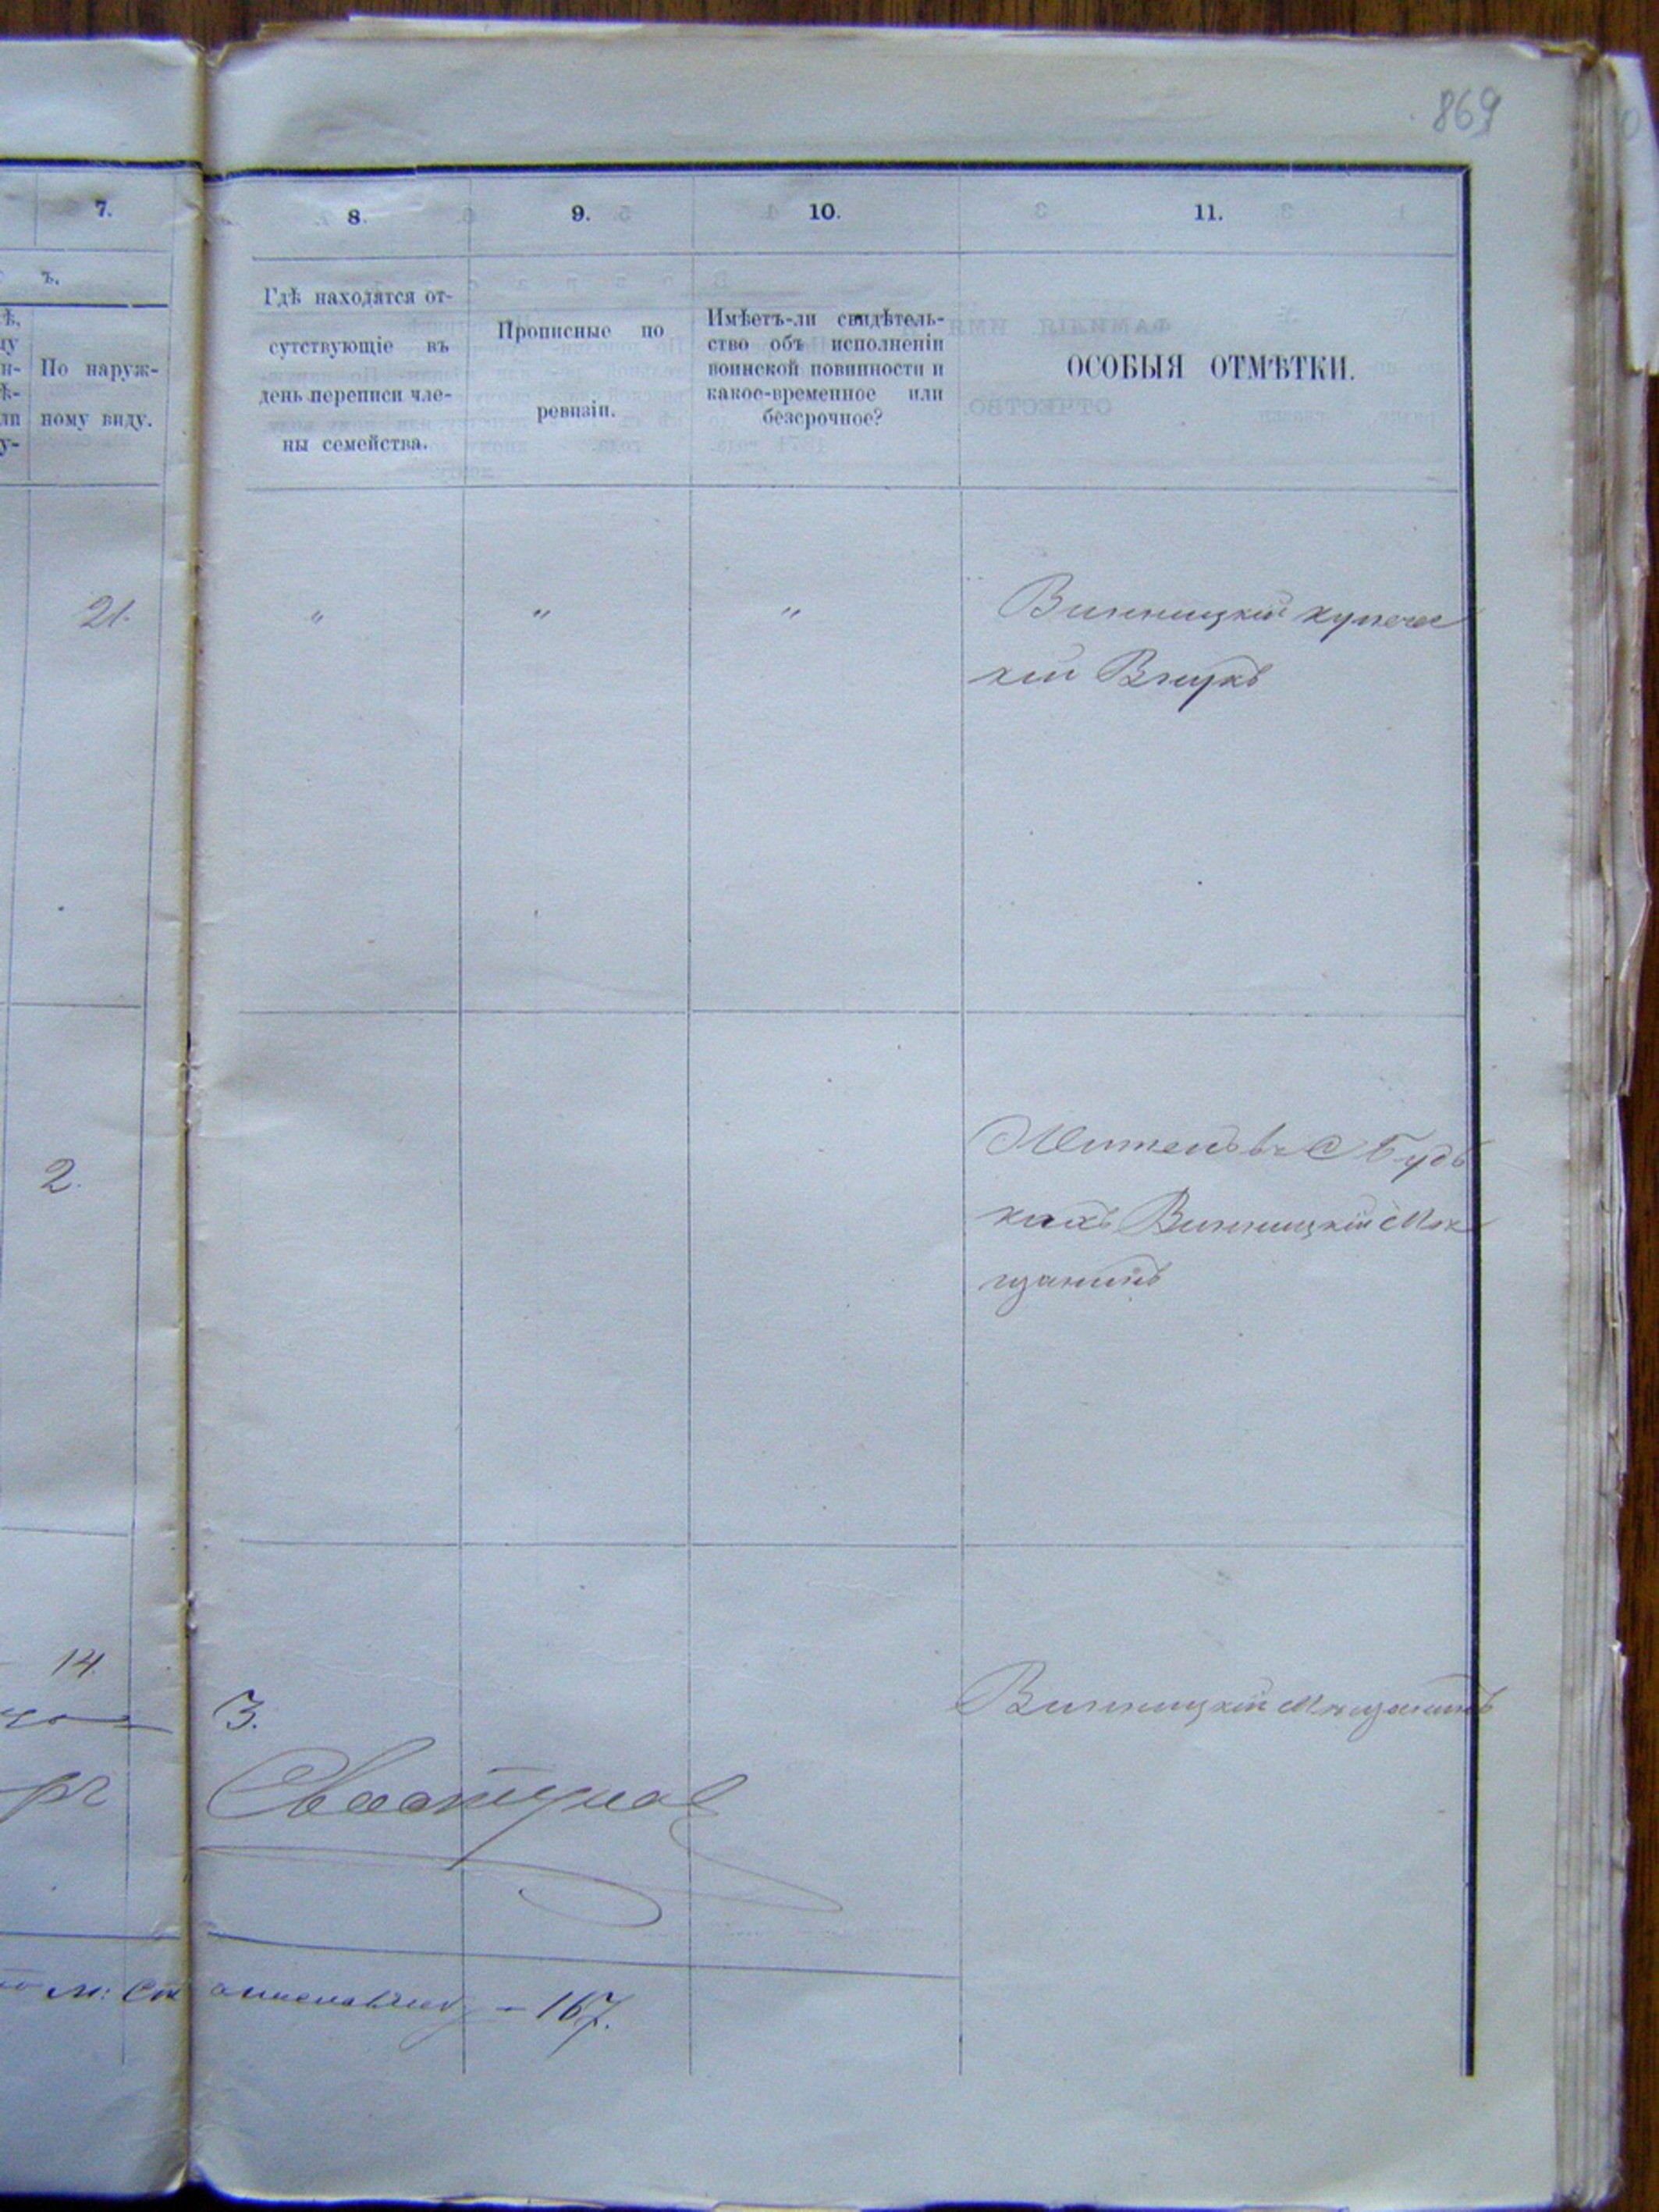 869
7.
8.
9.
10.
11.
ъ.
По наруж-
ному виду.
Гдѣ находятся от-
сутствующіе въ
день переписи чле-
ны семейства.
Прописные по
ревизіи.
Имѣетъ-ли свидѣтель-
ство объ исполненіи
воинской повинности и
какое-временное или
безсрочное?
ОСОБЫЯ ОТМѢТКИ.
21.
"
"
"
Винницкій купечес
кій Внукъ
2.
Жителъ въ с Будь
кахъ Винницкій Мѣ
щанинъ
14
3.
Винницкій Мѣщанинъ
м:
– 167.